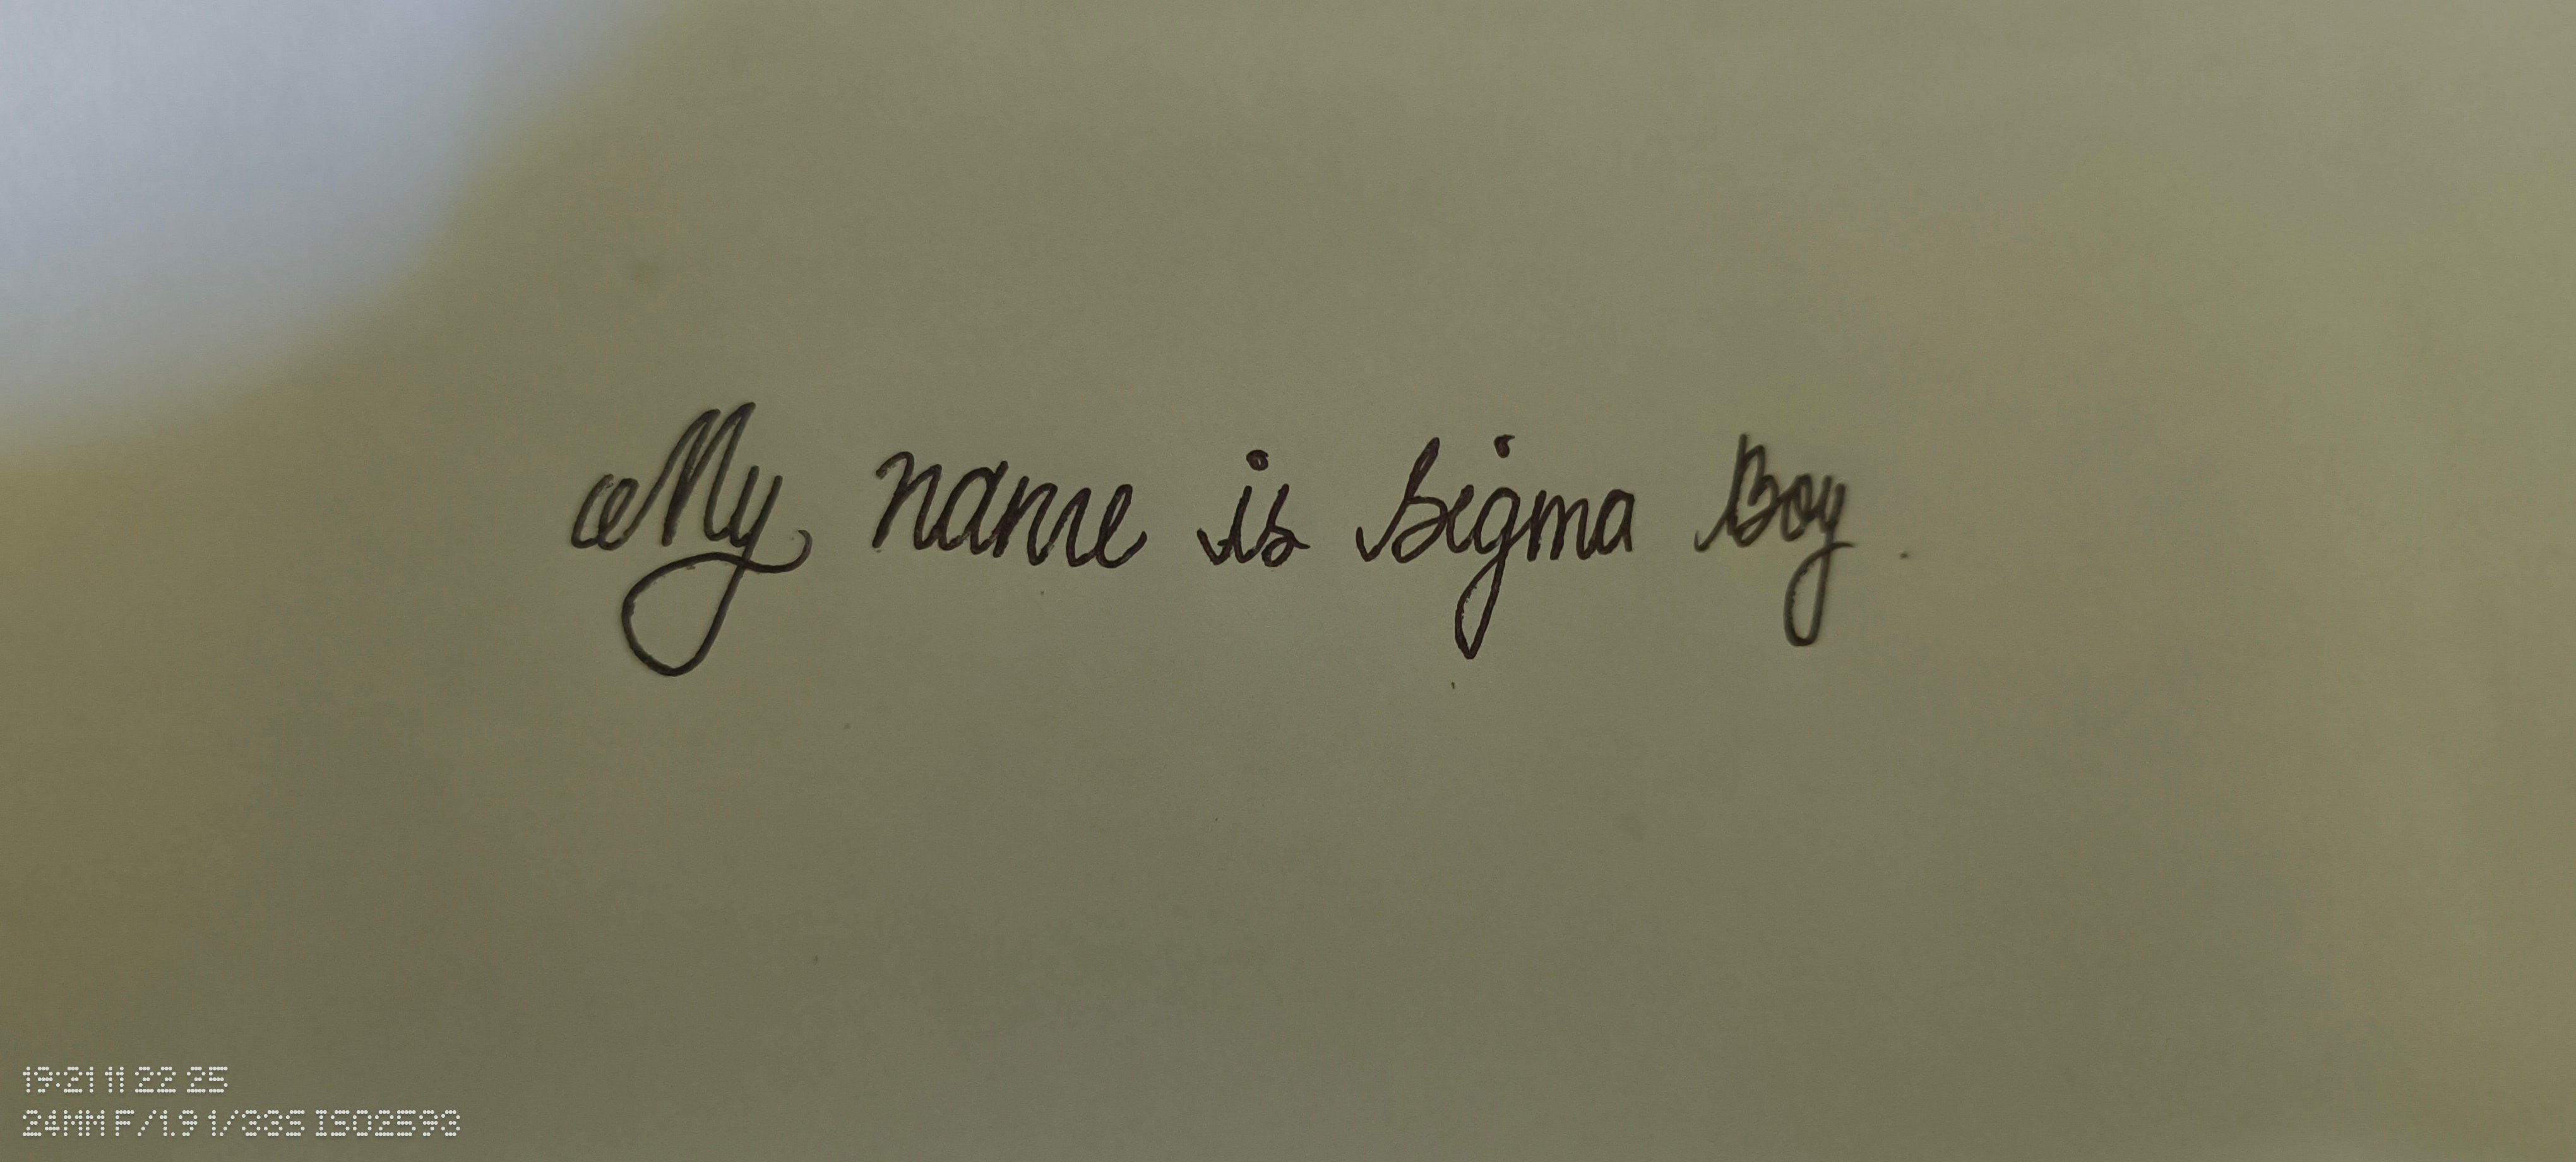 My name is sigma Boy.
19:21 11 22 25
24MM F/1.9 1/33S ISO2593